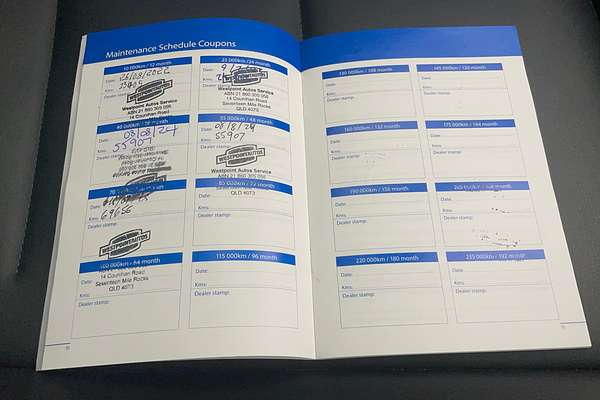 Maintenance Schedule Coupons
10 000km / 12 month
Date: 26/08/2022
Kms:
Dealer stamp:
WESTPOINTAUTOS
Westpoint Autos Service
ABN 21 860 305 056
14 Counihan Road
25 000km / 24 month
Date:
Kms:
Dealer stamp:
Westpoint Autos Service
ABN 21 860 305 056
14 Counihan Road
Seventeen Mile Rocks
QLD 4073
40 000km / 36 month
Date: 08/08/24
Kms: 55907
Dealer stamp:
55 000km / 48 month
Date: 08/8/24
Kms: 55907
Dealer stamp:
WESTPOINTAUTOS
Westpoint Autos Service
ABN 21 860 305 056
70
Date:
Kms: 69656
Dealer stamp:
WESTPOINTAUTOS
85 000km / 72 month
QLD 4073
Date:
Kms:
Dealer stamp:
100 000km / 84 month
Date:
14 Counihan Road
Seventeen Mile Rocks
QLD 4073
Kms:
Dealer stamp:
115 000km / 96 month
Date:
Kms:
Dealer stamp:
130 000km / 108 month
Date:
Kms:
Dealer stamp:
145 000km / 120 month
Date:
Kms:
Dealer stamp:
160 000km / 132 month
Date:
Kms:
Dealer stamp:
175 000km / 144 month
Date:
Kms:
Dealer stamp:
190 000km / 156 month
Date:
Kms:
Dealer stamp:
Date:
Kms:
Dealer stamp:
220 000km / 180 month
Date:
Kms:
Dealer stamp:
235 000km / 192 month
Date:
Kms:
Dealer stamp: